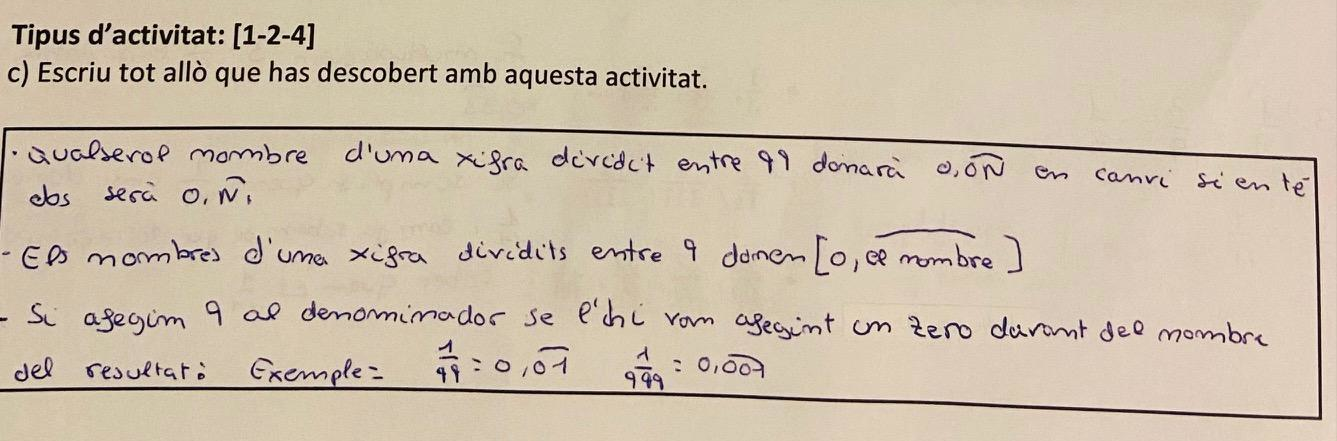 Tipus d’activitat: [1-2-4]
c) Escriu tot allò que has descobert amb aquesta activitat.
· Qualserol nombre d'una xifra dividit entre 99 donarà 0,0̅N̅ en canvi si en té
dos serà 0,N̅.
- Els nombres d'una xifra dividits entre 9 donen [0, el nombre]
- Si afegim 9 al denominador se l'hi van afegint un zero davant del nombre
del resultat: Exemple= 1/99 = 0,0̅1̅ 1/999 = 0,0̅0̅1̅